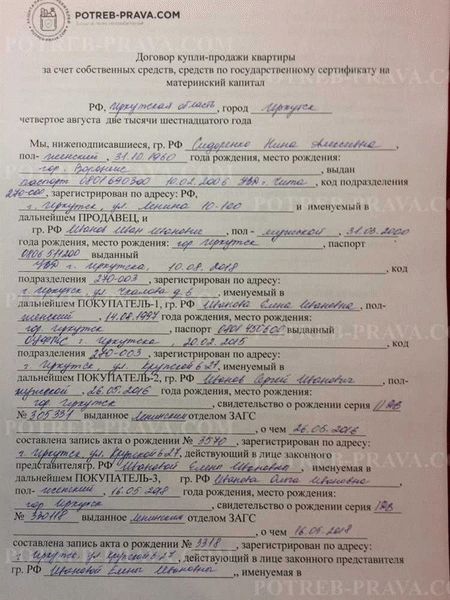 POTREB-PRAVA.COM
Договор купли-продажи квартиры
за счет собственных средств, средств по государственному сертификату на
материнский капитал
РФ, Иркутская область, город Иркутск
четвертое августа две тысячи шестнадцатого года
Мы, нижеподписавшиеся, гр. РФ Сидоренко Нина Алексеевна,
пол- женский, 31.10.1960 года рождения, место рождения:
гор. Воронеж, выдан
паспорт 0801 690300 10.02.2006 УВД г. Чита, код подразделения
270-000, зарегистрирован по адресу: РФ,
г. Иркутск, ул. Ленина 10-100 и именуемый в
дальнейшем ПРОДАВЕЦ, и
гр. РФ Иванов Иван Иванович, пол - мужской, 31.03.2000
года рождения, место рождения: гор. Иркутск, паспорт
0106 511200 выданный
УВД г. Иркутска, 10.08.2018, код
подразделения 270-003, зарегистрирован по адресу:
г. Иркутск, ул. Чкалова д. 5, именуемый в
дальнейшем ПОКУПАТЕЛЬ-1, гр. РФ Иванова Елена Ивановна, пол-
женский, 14.08.1997 года рождения, место рождения:
гор. Иркутск, паспорт 0401 430600 выданный
ОУФМС г. Иркутска, 20.02.2015, код
подразделения 270-003, зарегистрирован по адресу:
г. Иркутск, ул. Крупской 6-27, именуемый в
дальнейшем ПОКУПАТЕЛЬ-2, гр. РФ Иванов Сергей Иванович, пол-
мужской, 26.05.2016 года рождения, место рождения:
гор. Иркутск, свидетельство о рождении серия
№ 305331 выданное Ленинским отделом ЗАГС
, о чем 26.05.2016
составлена запись акта о рождении № 3570, зарегистрирован по адресу:
г. Иркутск ул. Крупской 6-27, действующий в лице законного
представителягр. РФ Ивановой Елены Ивановны, именуемая в
дальнейшем ПОКУПАТЕЛЬ-3, гр. РФ Иванова Ольга Ивановна,
пол- женский, 16.05.2018 года рождения, место рождения:
гор Иркутск, свидетельство о рождении серия
№ 330118 выданное Ленинским отделом ЗАГС
, о чем 16.05.2018
составлена запись акта о рождении № 3318, зарегистрирован по адресу:
г. Иркутск, ул. Крупской 6-27, действующий в лице законного представителя
гр. РФ Ивановой Елены Ивановны, именуемая в